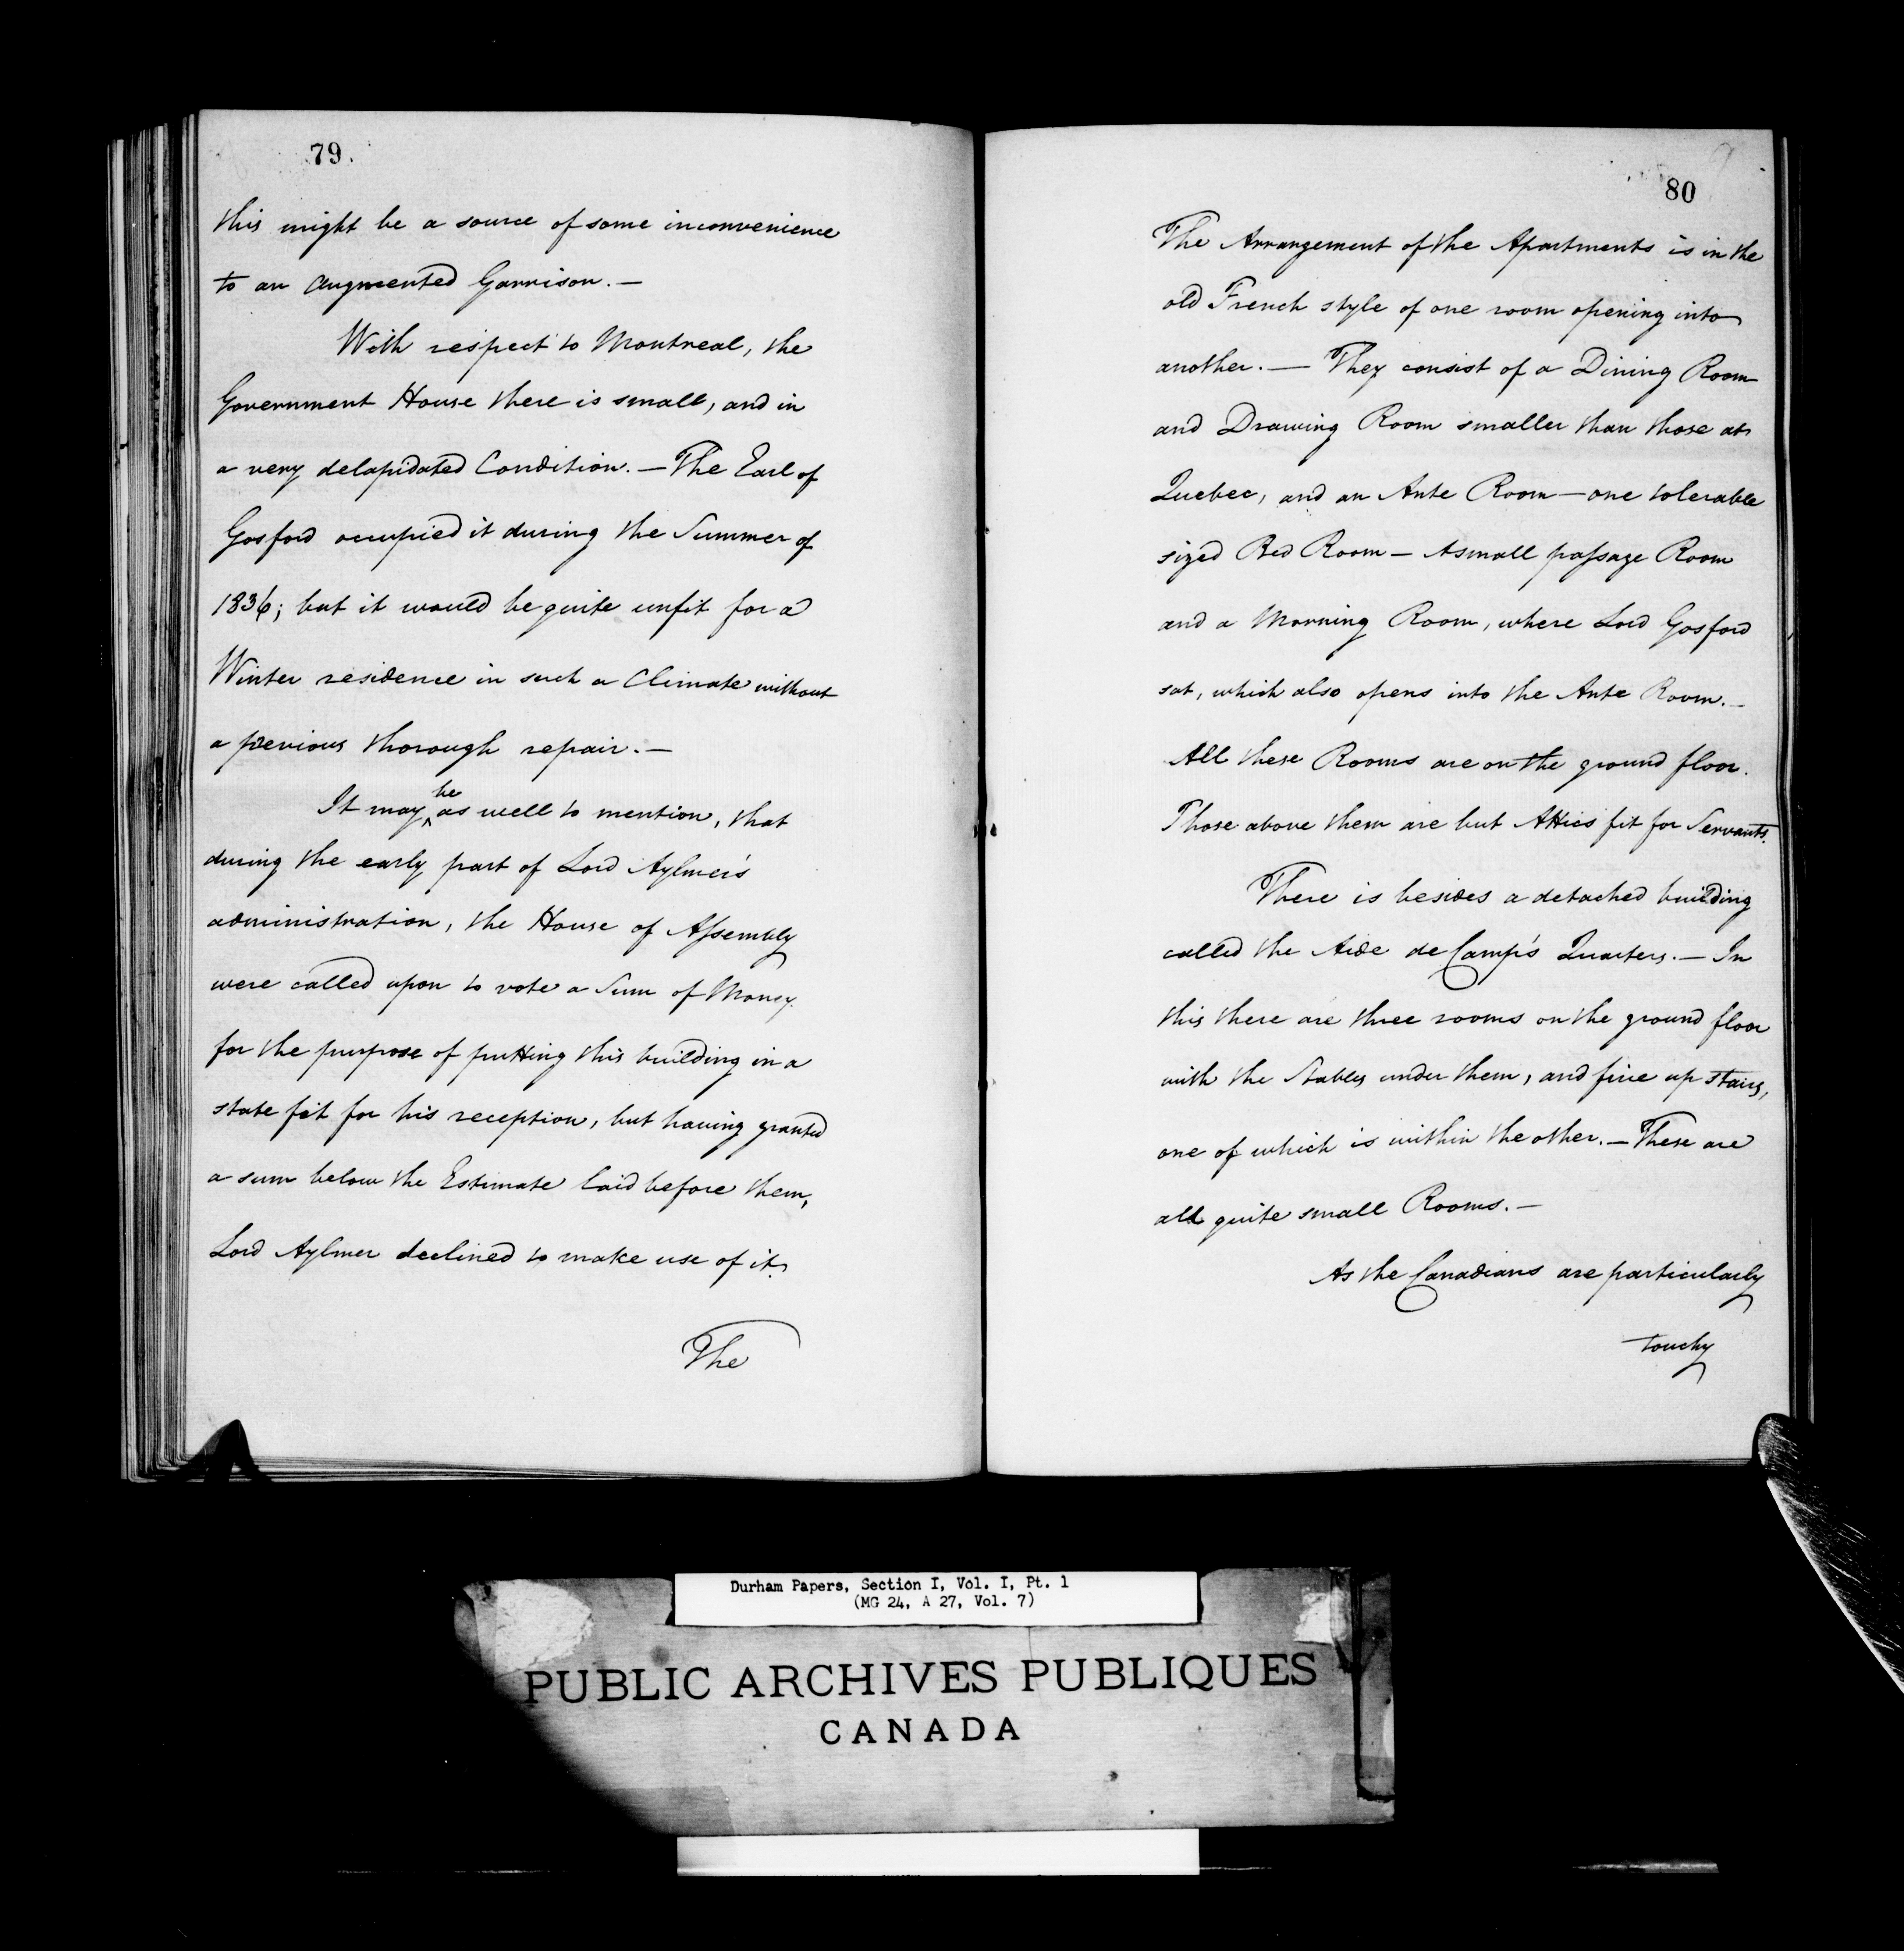 79.
this might be a source of some inconvenience
to an augmented Garrison. —
With respect to Montreal, the
Government House there is small, and in
a very delapidated Condition. — The Earl of
Gosford occupied it during the Summer of
1836; but it would be quite unfit for a
Winter residence in such a Climate without
a previous thorough repair. —
be
It may ‸ as well to mention, that
during the early part of Lord Aylmer's
administration, the House of Assembly
were called upon to vote a Sum of Money
for the purpose of putting this building in a
state fit for his reception, but having granted
a sum below the Estimate laid before them,
Lord Aylmer declined to make use of it.
The
80
The Arrangement of the Apartments is in the
old French style of one room opening into
another. — They consist of a Dining Room
and Drawing Room smaller than those at
Quebec, and an Ante Room — one tolerable
sized Bed Room — A small passage Room
and a Morning Room, where Lord Gosford
sat, which also opens into the Ante Room. —
All these Rooms are on the ground floor.
Those above them are but Attics fit for Servants.
There is besides a detached building
called the Aide de Camp's Quarters. — In
this there are three rooms on the ground floor
with the Stables under them, and five up stairs,
one of which is within the other. — These are
all quite small Rooms. —
As the Canadians are particularly
touchy
Durham Papers, Section I, Vol. I, Pt. 1
(MG 24, A 27, Vol. 7)
PUBLIC ARCHIVES PUBLIQUES
CANADA